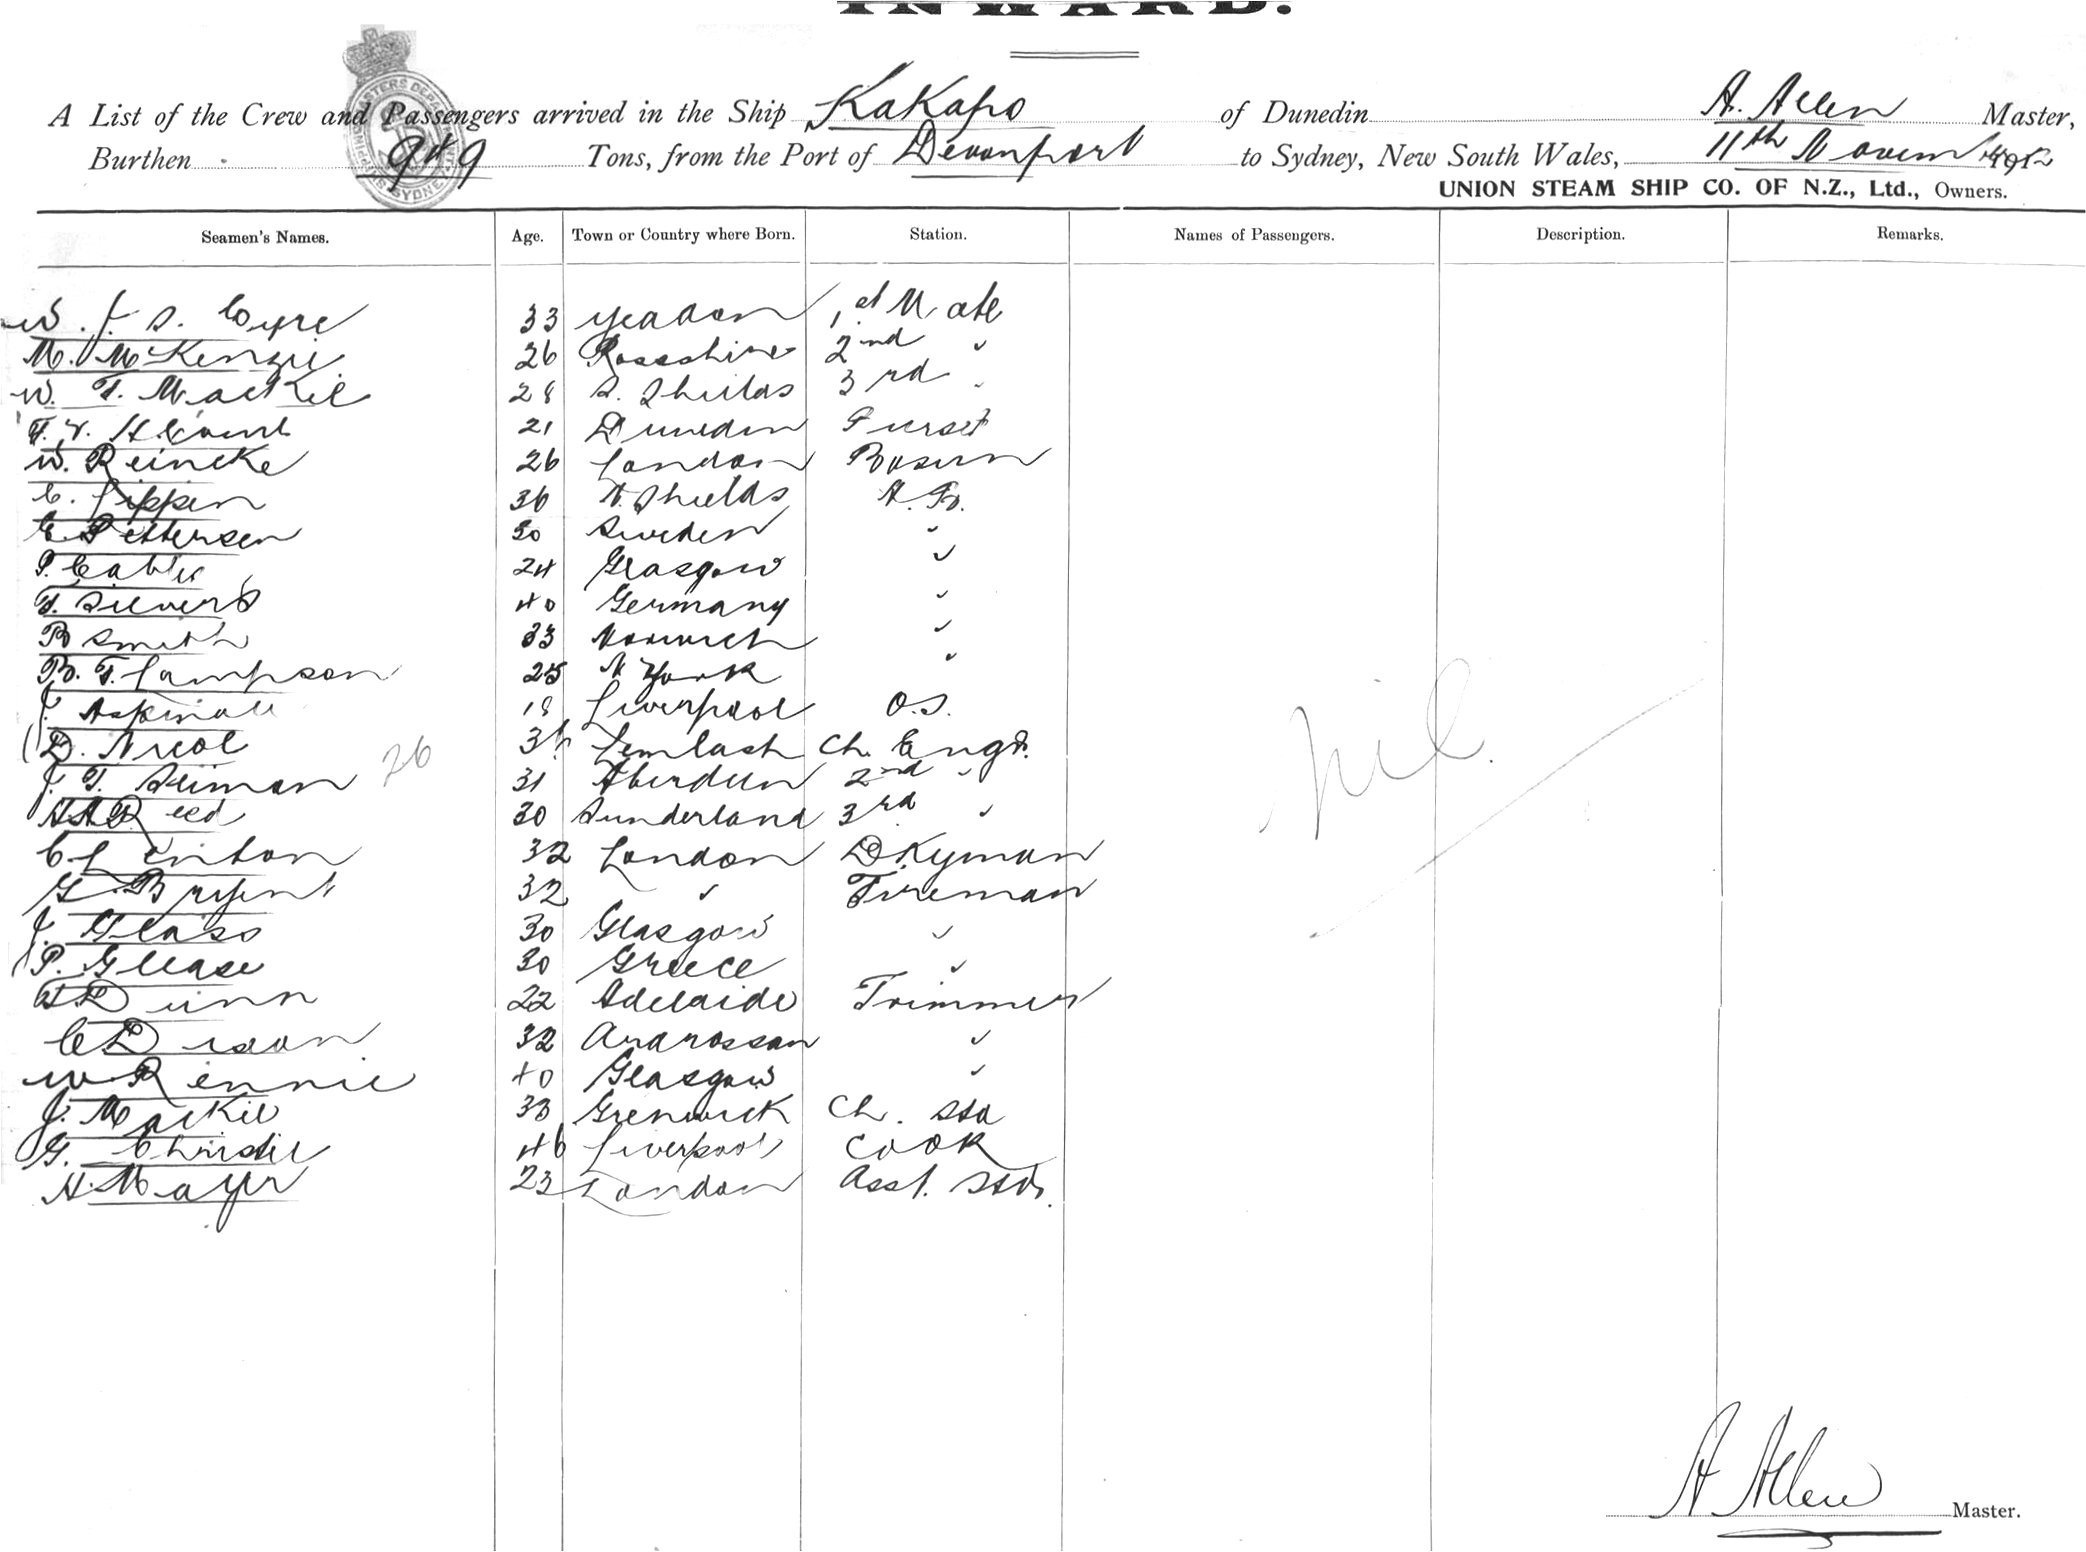 INWARD.
A List of the Crew and Passengers arrived in the Ship Kakapo of Dunedin A. Allen Master,
Burthen 949 Tons, from the Port of Devonport to Sydney, New South Wales, 11th Novem 1912
UNION STEAM SHIP CO. OF N.Z., Ltd., Owners.
Seamen's Names. Age. Town or Country where Born. Station. Names of Passengers. Description. Remarks.
W. J. S. Coyre 33 Yeadon 1st Mate
M. McKenzie 26 Rossshire 2nd "
W. F. Mackie 28 S. Shields 3rd "
21 Dunedin Purser
W. Reincke 26 London Bosun
C. Lippen 36 N. Shields A.B.
E. Pettersen 30 Sweden "
P. Cable 24 Glasgow "
F. Sievers 40 Germany "
B Smith 33 Norwich "
B. F. Lampson 25 N York "
J. Aspinall 18 Liverpool O.S.
D. Nicol 36 Lemlash Ch. Engr.
26
J. F. Sliman 31 Aberdeen 2nd "
Reed 30 Sunderland 3rd "
C Lenton 32 London Dkyman
G. Bryent 32 " Fireman
J. Glass 30 Glasgow "
P. Glease 30 Greece "
F Dunn 22 Adelaide Trimmer
C Dixon 32 Ardrossan "
W Rennie 40 Glasgow "
J. Mackie 33 Grenwick Ch. Std
G. Christie 46 Liverpool Cook
H. Mayer 23 London Asst. Std.
Nil.
A Allen Master.